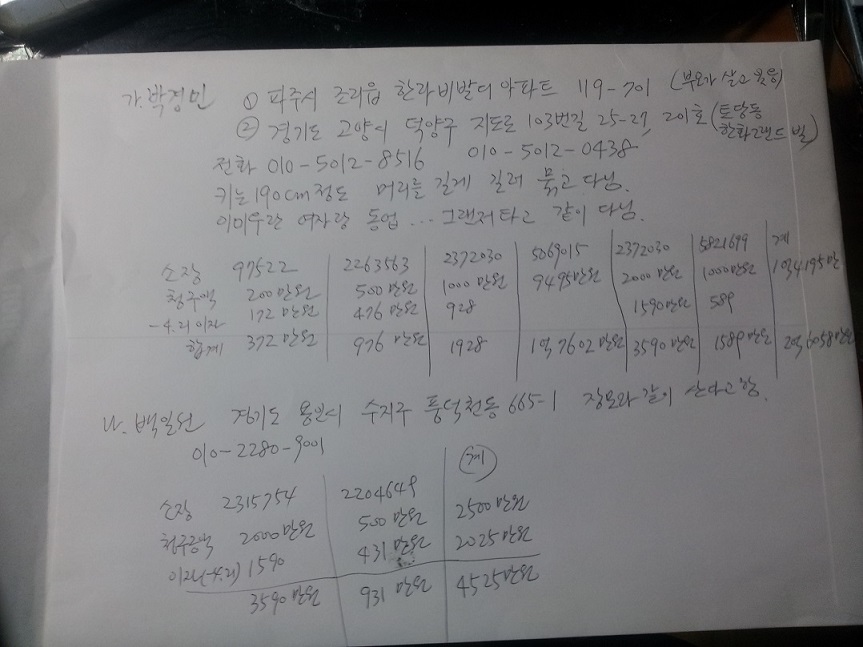 가. 박경민 ① 파주시 조리읍 한라비발디아파트 119-701 (부모가 살고 있음)
② 경기도 고양시 덕양구 지도로 103번길 25-27, 201호 (토당동 한화그랜드빌)
전화 010-5012-8516 010-5012-0438
키는 190cm정도 머리를 길게 길러 묶고 다님.
이미우란 여자랑 동업 ... 그랜저타고 같이 다님.
소장 97522 2263563 2372030 5069015 2372030 5821699 계
청구액 200만원 500만원 1000만원 9495만원 2000만원 1000만원 1억4195만
-4.리이자 172만원 476만원 928 1590만원 589
합계 372만원 976만원 1928 1억7602만원 3590만원 1589만원 2억6058만원
나. 백일현 경기도 용인시 수지구 풍덕천동 665-1 장모와 같이 산다고 함.
010-2280-9001
계
소장 2315754 2204649 2500만원
청구금액 2000만원 500만원 2025만원
이자(-4.리) 1590 431만원
3590만원 931만원 4525만원